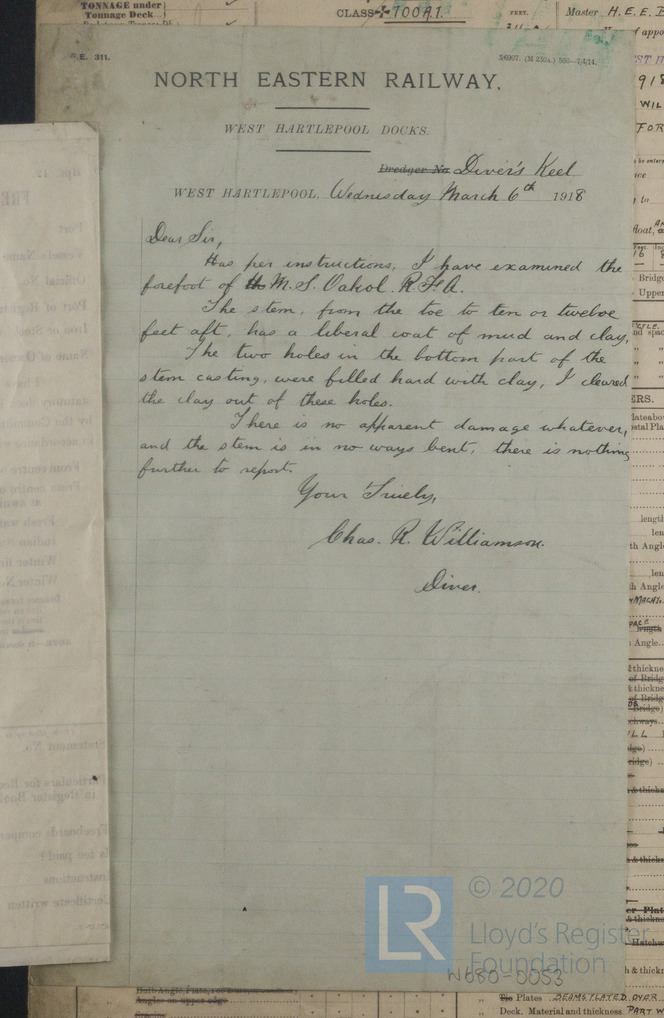 TONNAGE under
Tonnage Deck
CLASS 100A1.
FEET.
Master H. E. E.
N.E. 311.
NORTH EASTERN RAILWAY.
WEST HARTLEPOOL DOCKS.
Dredger No Diver's Keel
WEST HARTLEPOOL, Wednesday March 6th 1918
Dear Sir,
Has per instructions, I have examined the
forefoot of H M. S. Oakol. R F A.
The stem, from the toe to ten or twelve
feet aft, has a liberal coat of mud and clay,
The two holes in the bottom part of the
stem casting, were filled hard with clay, I cleared
the clay out of these holes.
There is no apparent damage whatever,
and the stem is in no ways bent, there is nothing
further to report.
Your Truely,
Chas. R. Williamson.
Diver.
© 2020
LR
Lloyd's Register
Foundation
W680-0053
Bulb Angle, Plate,
Angles on upper edge
Tie Plates BEAMS PLATED OVER
Deck. Material and thickness PART